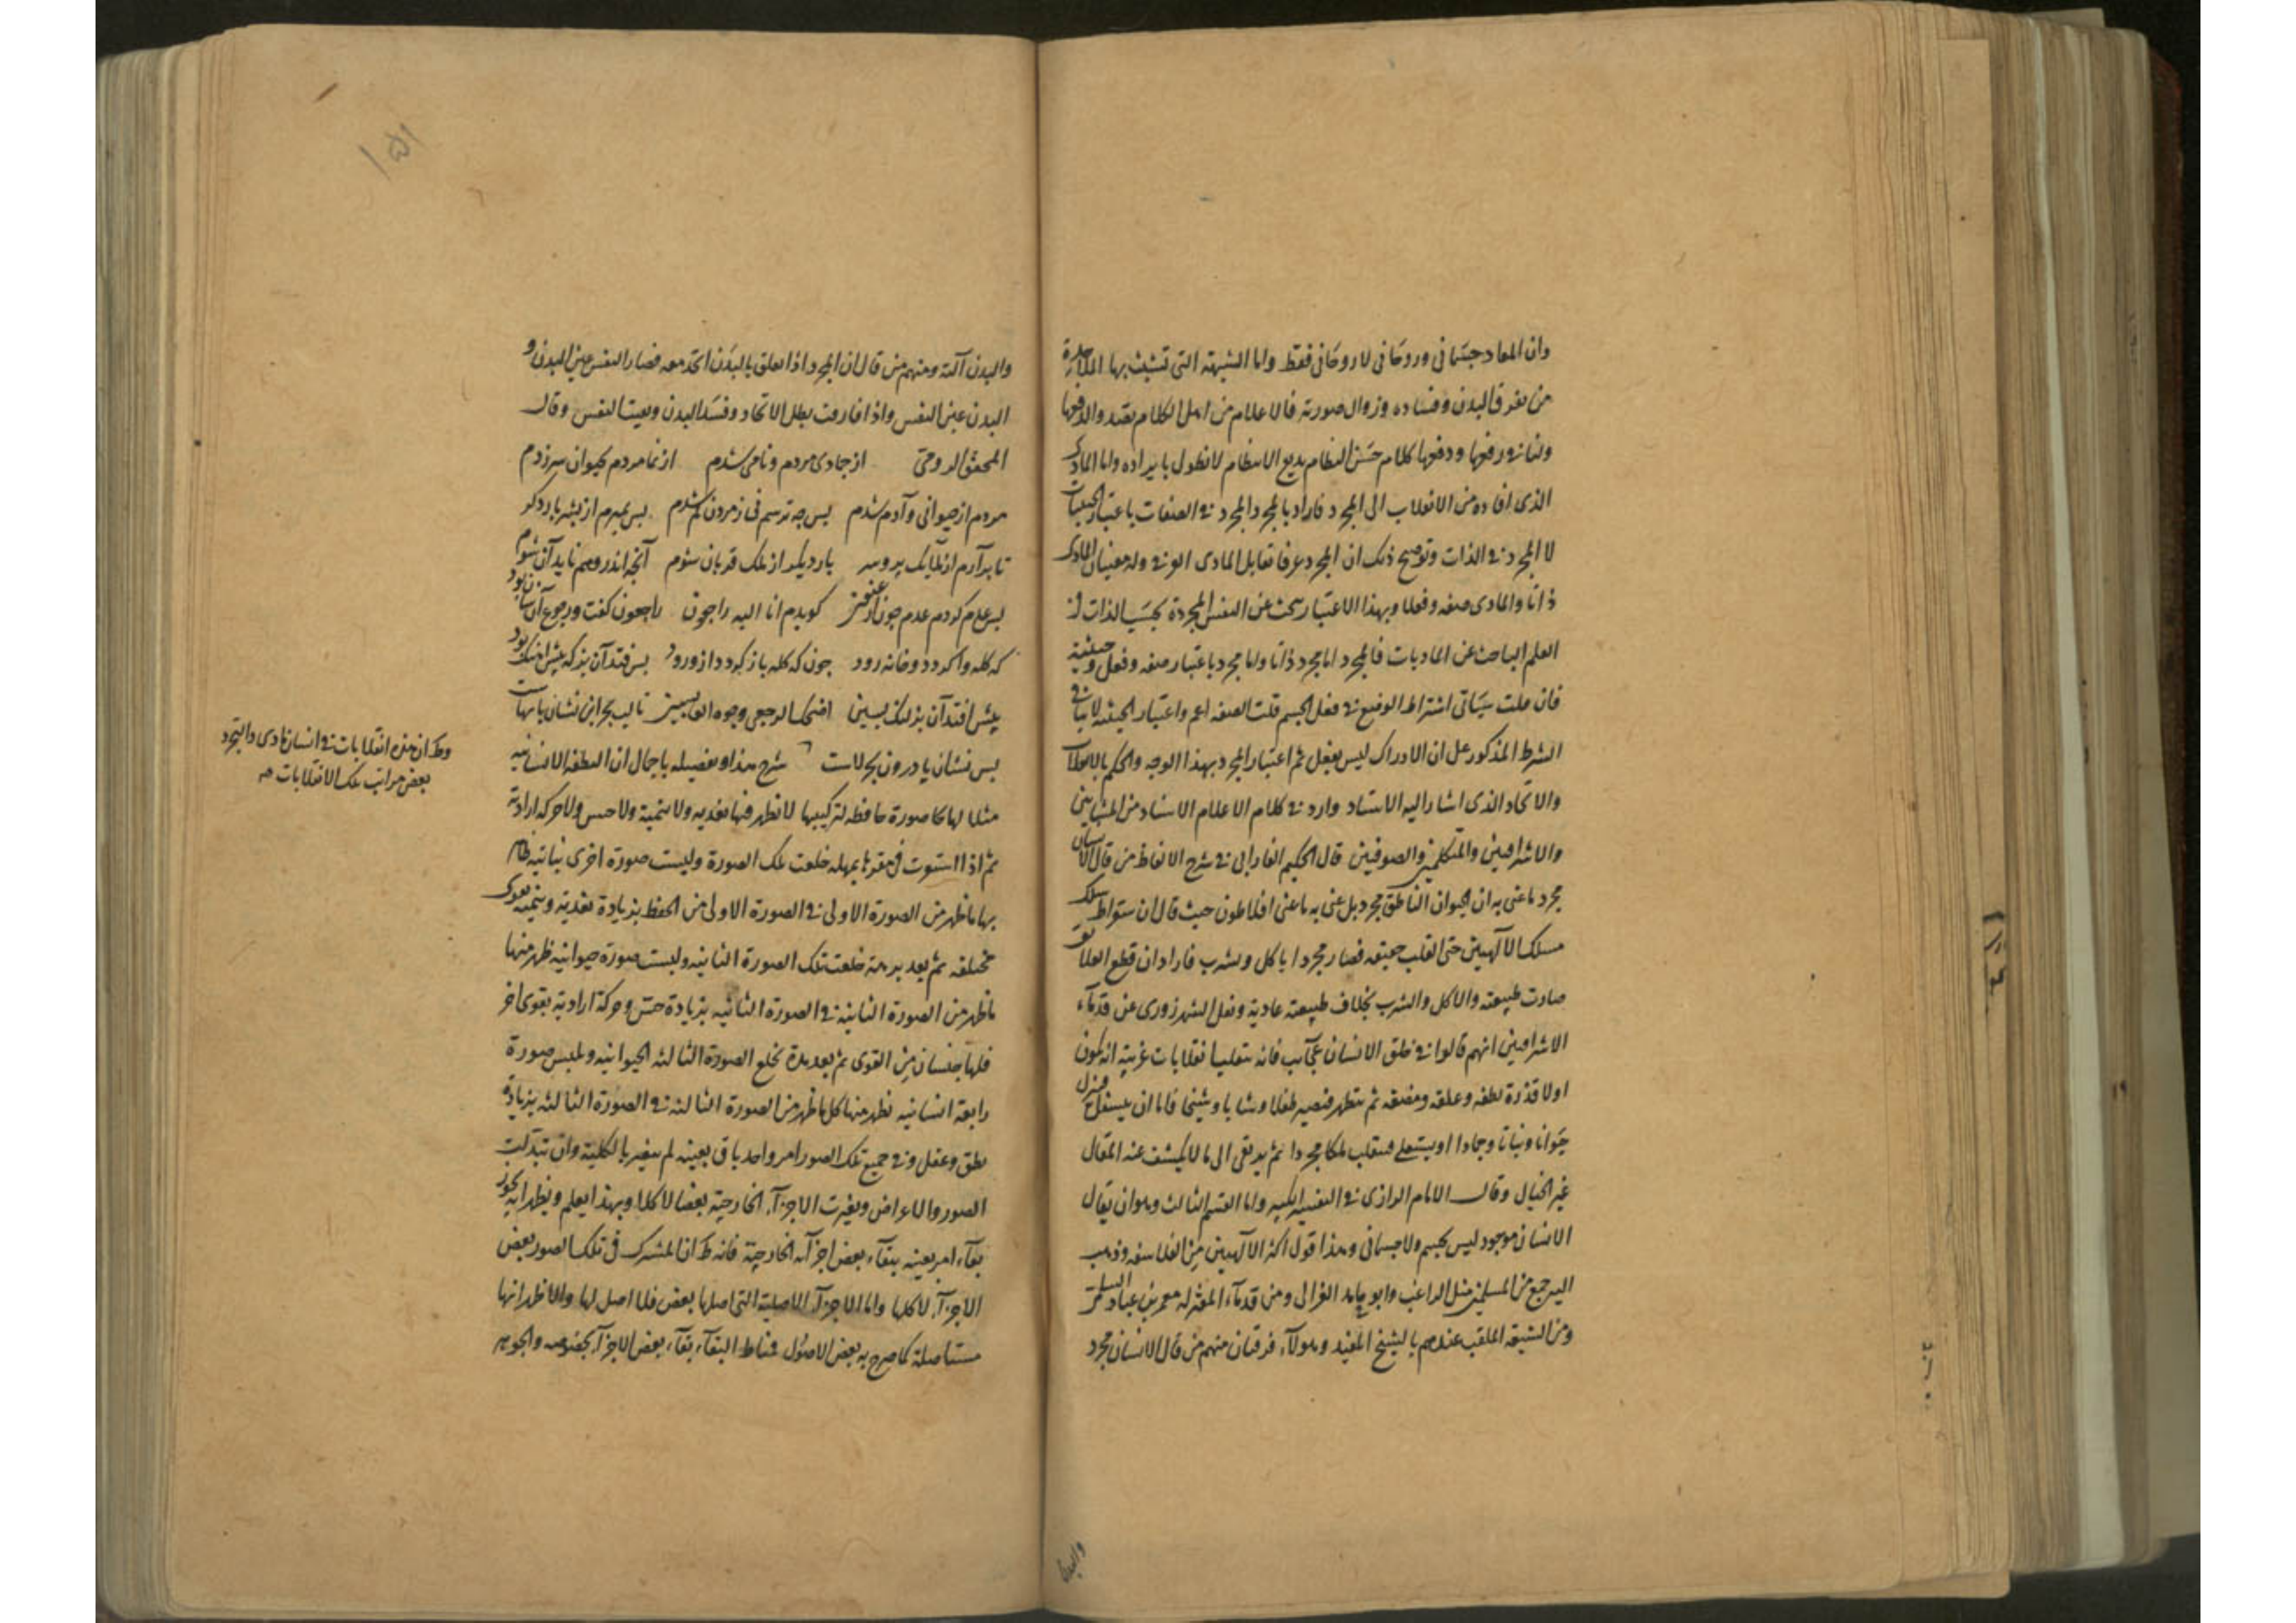 وان المعاد جسمانى وروحانى لا روحانى فقط واما الشبهة التى تشبث بها الملاحدة
من تفرق البدن وفساده وزوال صورته فالاعلام من اهل الكلام بعقد والدفعها
ولنا فى رفعها ودفعها كلام حسن النظام بديع الانتظام لا نطول بايراده واما المادى
الذى افاده من الانقلاب الى المجرد فاراد بالمجرد المجرد فى الصفات باعتبار الحيثيات
لا المجرد فى الذات وتوضيح ذلك ان المجرد عرفا تقابل المادى العرفى وله معنيان المادى
ذاتا والمادى صفة وفعلا وبهذا الاعتبار يبحث عن النفس المجردة بحسب الذات فى
العلم الباحث عن الماديات فالمجرد اما مجرد ذاتا واما مجرد باعتبار صفة وفعل وحيثية
فان قلت سيأتى اشتراط الوضع فى فعل الجسم قلت الصفة اعم واعتبار الحيثية لا ينافى
الشرط المذكور على ان الادراك ليس بفعل ثم اعتبار المجرد بهذا الوجه والحكم بالانقلاب
والاتحاد الذى اشار اليه الاستاد وارد فى كلام الاعلام الاستاد من المشايين
والاشراقيين والمتكلمين والصوفيين قال الحكيم الفارابى فى شرح الالفاظ من قال الانسان
مجرد ما عنى به ان الحيوان الناطق مجرد بل عنى به ما عنى افلاطون حيث قال ان سقراط سلك
مسلك الآلهيين حتى انقلب حقيقه فصار مجردا ياكل ويشرب فاراد ان قطع العلائق
صارت طبيعته والاكل والشرب بخلاف طبيعته عادية ونقل الشهرزورى عن قدماء
الاشراقيين انهم قالوا فى خلق الانسان عجايب فانه متقلب انقلابات غريبة انه يكون
اولا قذرة نطفه وعلقه ومضغه ثم يتطهر فتصير طفلا وشابا وشيخا فاما ان يستفل فينزل
حيوانا ونباتا وجمادا او يستعلى فينقلب ملكا مجردا ثم يرتقى الى ما لا يكشف عنه المقال
غير الخيال وقال الامام الرازى فى التفسير الكبير واما القسم الثالث وهو ان يقال
الانسان موجود ليس بجسم ولا جسمانى وهذا قول اكثر الآلهيين من الفلاسفه وذهب
اليه جمع من المسلمين مثل الراغب وابو حامد الغزالى ومن قدماء المعتزله معمر بن عباد السلمى
ومن الشيعة الملقب عندهم بالشيخ المفيد وهولاء فرقتان منهم من قال الانسان مجرد
والبدن
١٥١
والبدن آلته ومنهم من قال ان المجرد اذا تعلق بالبدن اتحد معه فصار النفس عين البدن و
البدن عين النفس واذا فارقت بطل الاتحاد وفسد البدن وبقيت النفس وقال
المحقق الرومى از جمادى مردم ونامى شدم از نما مردم بحيوان سر زدم
مردم از حيوانى وآدم شدم پس چه ترسم كى ز مردن كم شدم پس بميرم از بشر بار دگر
تا برآرم از ملايك پر وسر بار ديگر از ملك قربان شوم آنچه اندر وهم نايد آن شوم
پس عدم گردم عدم چون ارغنون گويدم انا اليه راجعون راجعون گفت ورجوع آن سان بود
كه گله واگردد وخانه رود چون كه گله باز گردد از ورود پس فتد آن بز كه پيش آهنگ بود
پيش افتد آن بز لنگ پسين اضحك الرجعى وجوه العابسين تا لب بحر اين نشان پاهاست
پس نشان پا درون بحر لاست شرح هذا وتفصيله باجمال ان النطفه الانسانيه
مثلا لها كا صورة حافظه لتركيبها لا تظهر فيها تغذيه ولا تنمية ولا حس ولا حركه ارادية
ثم اذا استوت فى مقرها بمهله خلعت تلك الصورة ولبست صورة اخرى نباتيه ظهر
بها ما ظهر من الصورة الاولى فى الصورة الاولى من الحفظ بزيادة تغذيه وتنميه بقوى
مختلفه ثم بعد برهة خلعت تلك الصورة الثانيه ولبست صورة حيوانيه ظهر منها
ما ظهر من الصورة الثانية فى الصورة الثانيه بزيادة حس وحركة ارادية بقوى اخر
فلها جنسان من القوى ثم بعد مدة تخلع الصورة الثالثه الحيوانيه وتلبس صورة
رابعة انسانيه تظهر منها كل ما ظهر من الصورة الثالثه فى الصورة الثالثه بزيادة
نطق وعقل وفى جميع تلك الصور امر واحد باق بعينه لم يتغير بالكلية وان تبدلت
الصور والاعراض وتغيرت الاجزآء الخارجية بعضا لا كلا وبهذا يعلم ويظهر انه يجوز
بقآء امر بعينه ببقآء بعض اجزآئه الخارجية فانه ظ ان المشترك فى تلك الصور بعض
الاجزآء لا كلها واما الاجزآء الاصلية التى اصلها بعض فلا اصل لها والاظهر انها
مستاصلة كما صرح به بعض الاصول فمناط البقآء بقآء بعض الاجزآء بخصوصه والجوهر
وظ ان هذه انقلابات فى انسان مادى والتجرد
بعض مراتب تلك الانقلابات منه